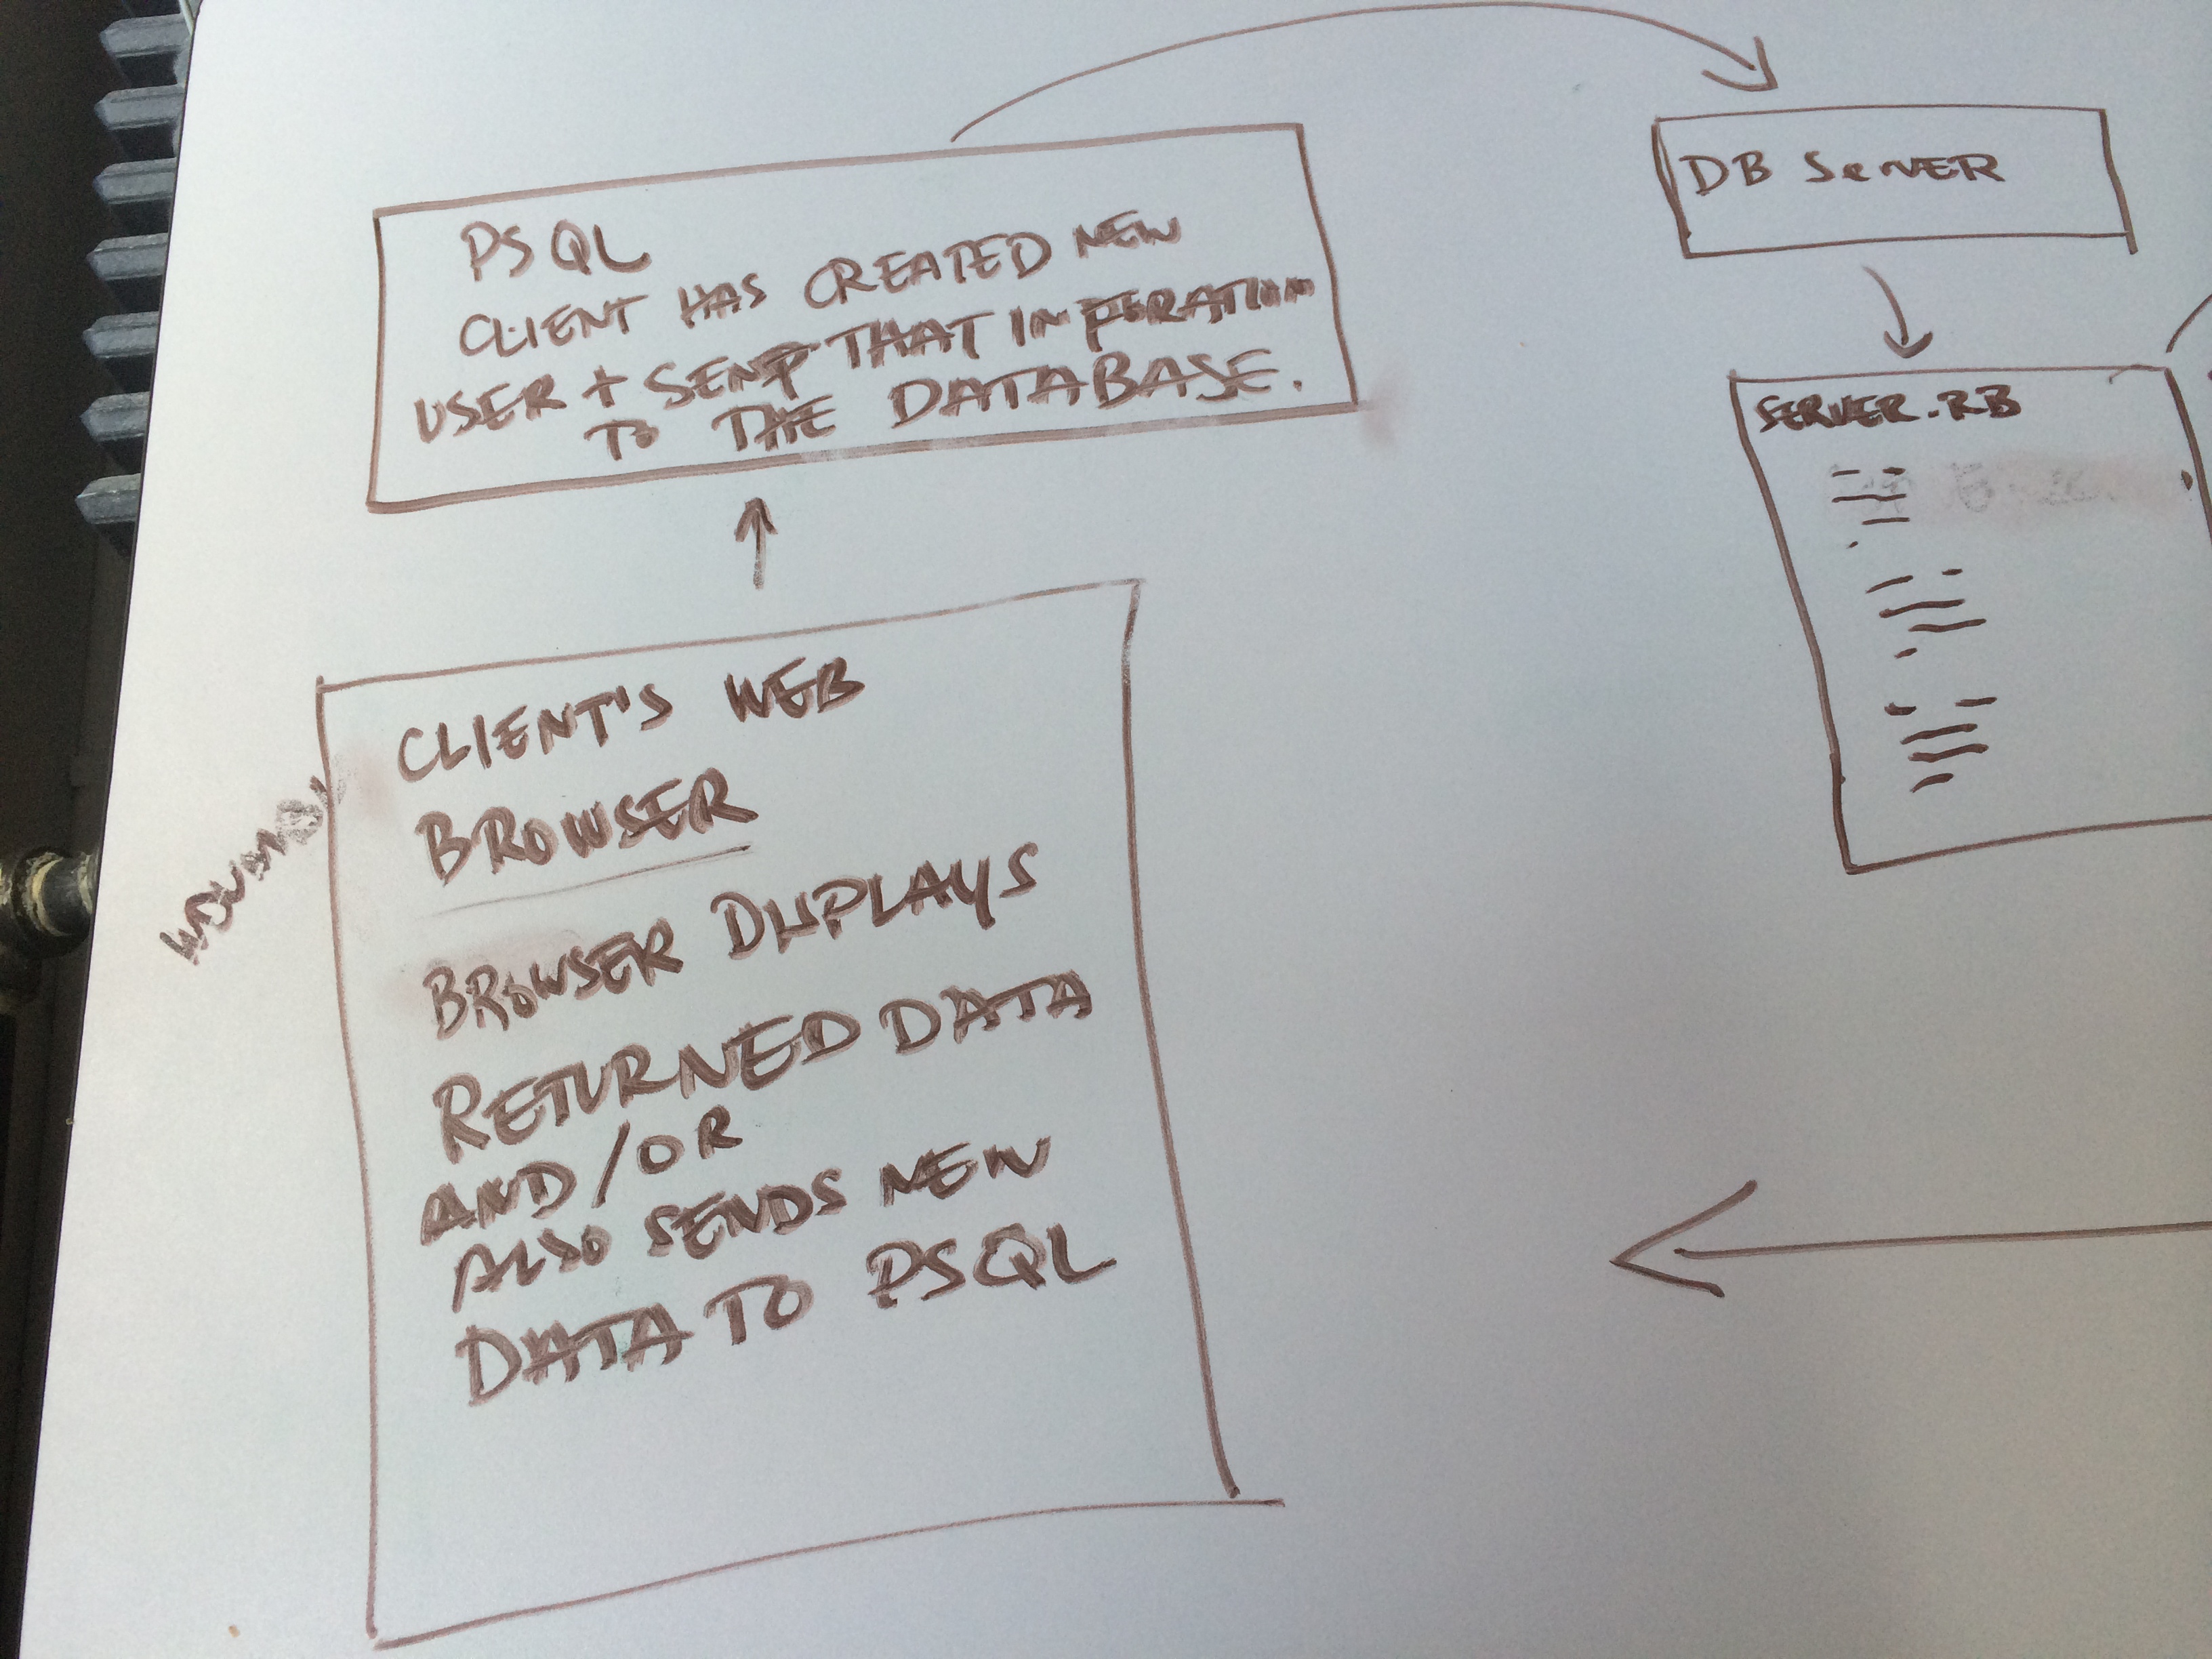 PSQL
CLIENT HAS CREATED NEW
USER + SEND THAT INFORATION
TO THE DATABASE.
DB SERVER
SERVER.RB
CLIENT'S WEB
BROWSER
BROWSER DISPLAYS
RETURNED DATA
AND/OR
ALSO SENDS NEW
DATA TO PSQL